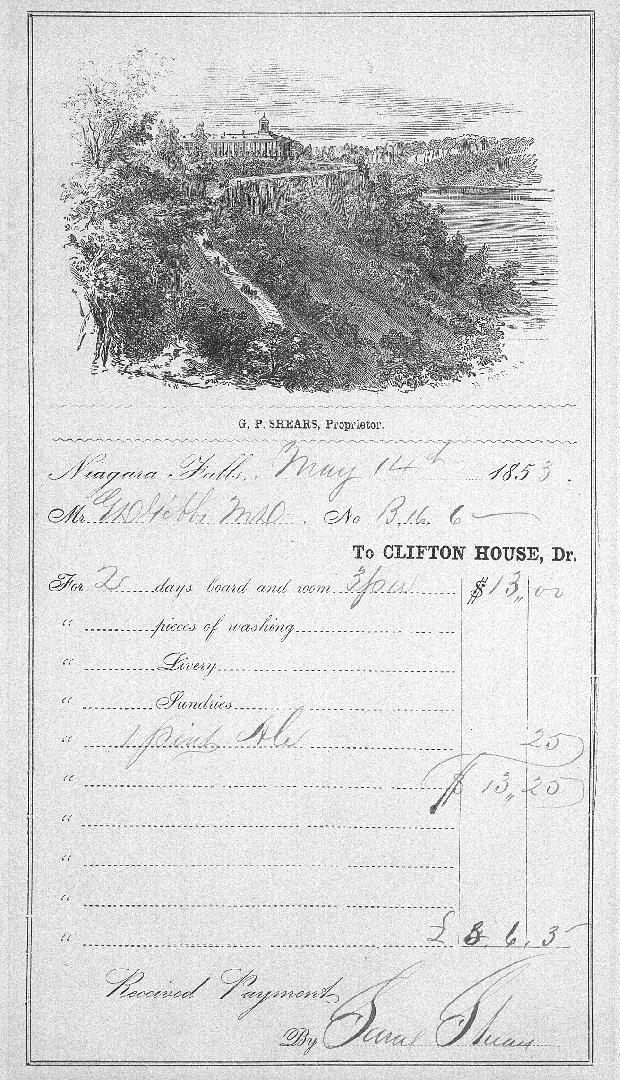 G. P. SHEARS, Proprietor.
Niagara Falls, May 14th 1853.
Mr No B. 6
To CLIFTON HOUSE, Dr.
For 2 days board and room $ 13,, 00
" pieces of washing
" Livery
" Sundries
" 1 pint Ale 25
" $ 13,, 25
"
"
"
" £ 3. 6. 3
Received Payment
By Shears